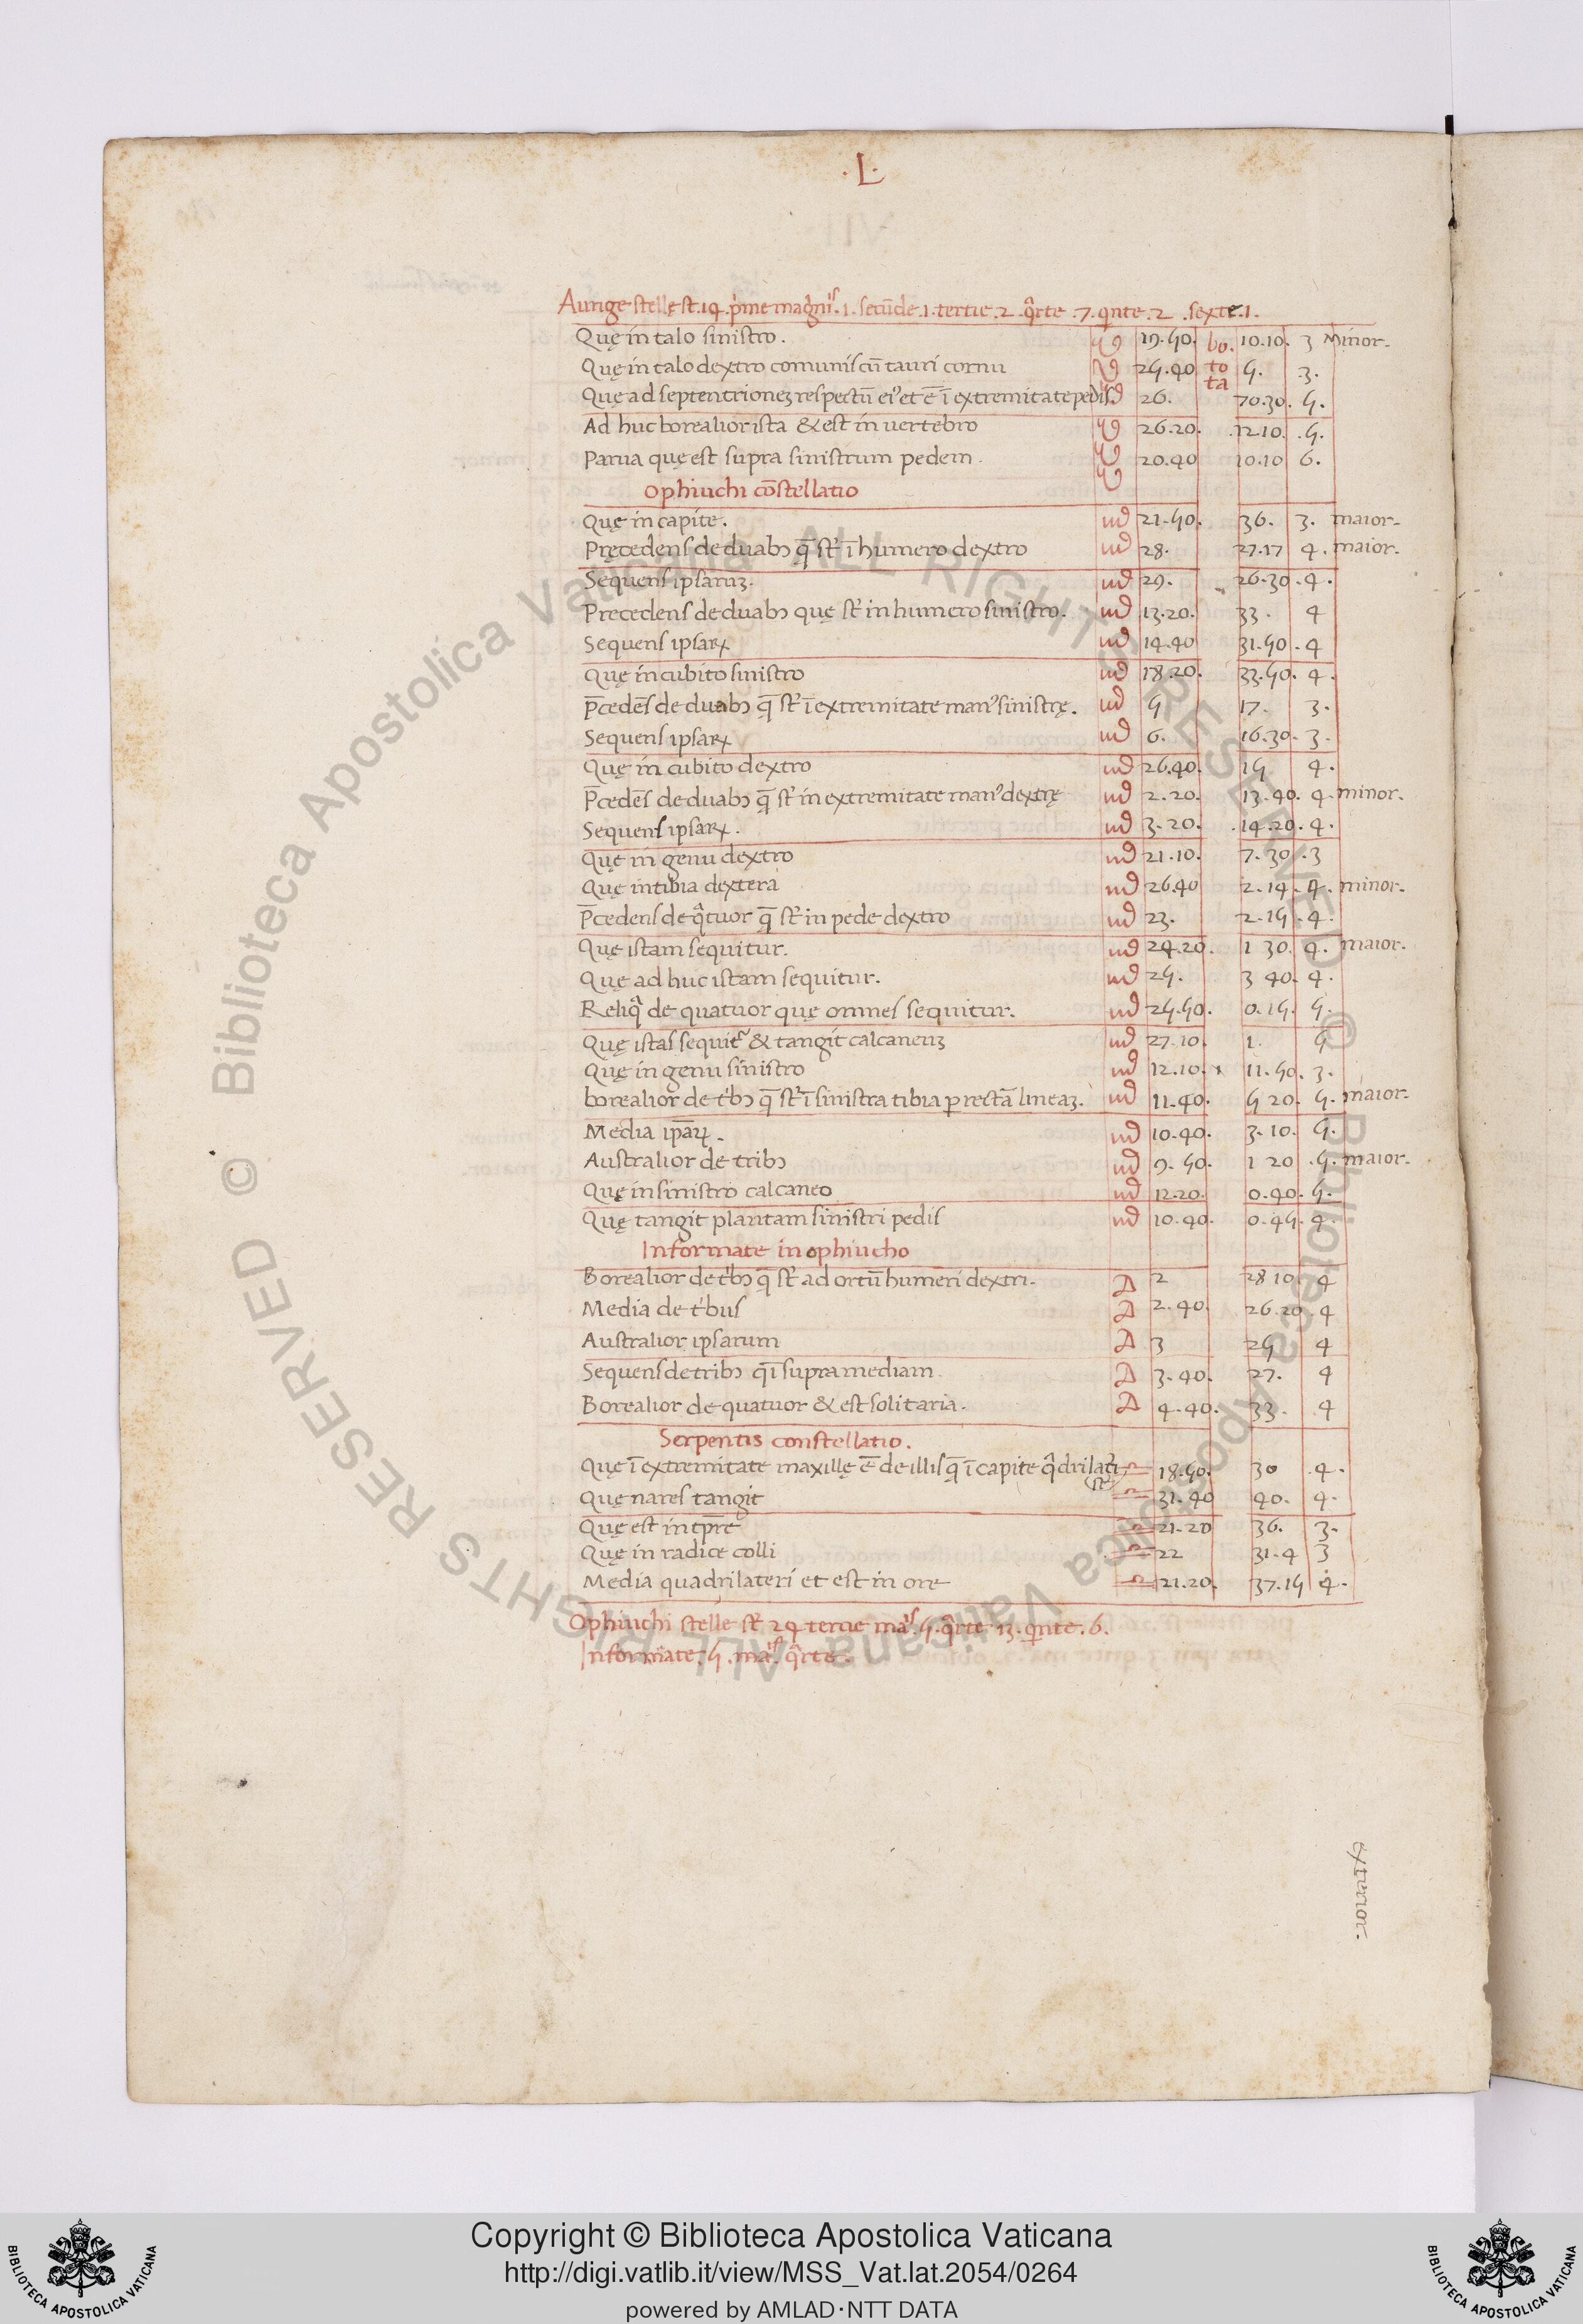 .L.
Aurige stellę st̄ .14. p̓me magn̓is .1. secūde .1. tertie .2. q̓rte .7. q̓nte .2. sexte .1.
Quę in talo sinistro. ♉ 19.50. bo. 10.10. 3 Minor.
Quę in talo dextro comunis cū tauri cornu ♉ 25.40 to 5. .3.
ta
Quę ad septentrionez respectū ei᾽ et ē ī extremitate pedis ♉ 26. 70.30. 5.
Ad huc borealior ista & est in uertebro ♉ 26.20. .12.10. .5.
Parua quę est supra sinistrum pedem. ♉ 20.40 10.10 6.
Ophiuchi cōstellatio ♉
Quę in capite. ♏ 21.50. 36. 3. maior.
Pręcedens de duabꝫ q̄ st̄ ī humero dextro ♏ 28. 27.17 4. maior.
Sequens ipsaruꝫ. ♏ 29. 26.30. 4.
Precedens de duabꝫ quę st̄ in humero sinistro. ♏ 13.20. 33. 4
Sequens ipsaꝝ ♏ 14.40 31.50. 4
Quę in cubito sinistro ♏ 18.20. 33.50. 4.
p̄cedēs de duabꝫ q̄ st̄ ī extremitate man᾽ sinistrę. ♏ 5 17. 3.
Sequens ipsaꝝ ♏ 6. 16.30. 3.
Quę in cubito dextro ♏ 26.40. 15 4.
P̄cedēs de duabꝫ q̄ st̄ in extremitate man᾽ dextrę ♏ 2.20. 13.40. 4. minor.
Sequens ipsaꝝ. ♏ 3.20. .14.20. 4.
Quę in genu dextro ♏ 21.10. 7.30 .3
Quę in tibia dextera ♏ 26.40 2.14. 4. minor.
P̄cedens de q̓tuor q̄ st̄ in pede dextro ♏ 23. 2.15. 4.
Quę istam sequitur. ♏ 24.20. 1 30. 4. maior.
Quę ad huc istam sequitur. ♏ 25. 3 40. 4.
Reliq̓ de quatuor quę omnes sequitur. ♏ 25.50. 0.15. 5.
Quę istas sequit᾽ & tangit calcaneuꝫ ♏ 27.10. 1. 5
Quę in genu sinistro ♏ 12.10. 11.50. 3.
borealior de t̓bꝫ q̄ st̄ ī sinistra tibia ꝑ rectā lineaꝫ. ♏ 11.40. 5 20. 5. maior.
Media ip̄aꝝ. ♏ 10.40. 3.10. 5.
Australior de tribꝫ ♏ 9.50. 1 20 .5. maior.
Quę in sinistro calcaneo ♏ 12.20. 0.40. 5.
Quę tangit plantam sinistri pedis ♏ 10.40. 0.45. 4.
Informate in ophiucho
Borealior de t̓bꝫ q̄ st̄ ad ortū humeri dextri. ♐ 2 28 10. 4
Media de t̓bus ♐ 2.40. 26.20. 4
Australior ipsarum ♐ 3 25 4
Sequens de tribꝫ q̄ī supra mediam. ♐ 3.40. 27. 4
Borealior de quatuor & est solitaria. ♐ 4.40. 33. 4
Serpentis constellatio.
Quę ī extremitate maxillę ē de illis q̄ ī capite q̓drilat̓i ♎ 18.50. 30 .4.
st̄
Quę nares tangit ♎ 31.40 40. 4.
Quę est in tp̄re ♎ 21.20 36. 3.
Quę in radice colli ♎ 22 31.4 3
Media quadrilateri et est in ore ♎ 21.20. 37.15 4.
Ophiuchi stelle st̄ 24 tercie ma᾽is .5. q̓rte 13. q̓nte .6.
Informate .5. ma᾽is q̓rte.
exterior.
© Biblioteca Apostolica Vaticana ALL RIGHTS RESERVED © Biblioteca Apostolica Vaticana ALL RIGHTS RESERVED
BIBLIOTECA APOSTOLICA VATICANA
Copyright © Biblioteca Apostolica Vaticana
http://digi.vatlib.it/view/MSS_Vat.lat.2054/0264
powered by AMLAD·NTT DATA
BIBLIOTECA APOSTOLICA VATICANA